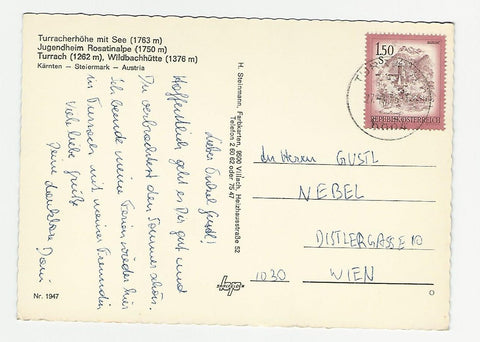 Turracherhöhe mit See (1763 m)
Jugendheim Rosatinalpe (1750 m)
Turrach (1262 m), Wildbachhütte (1376 m)
Kärnten – Steiermark – Austria
Lieber Onkel Gustl!
Hoffentlich geht es Dir gut und
Du verbrachtest den Sommer schön.
Ich beende meine Ferien wieder hier
in Turrach mit meiner Freundin
Viele liebe Grüße
Deine dankbare
Nr. 1947
H. Steinmann, Farbkarten, 9500 Villach, Heizhausstraße 52
Telefon 2 60 62 oder 75 47
1.50
REPUBLIK ÖSTERREICH
An Herrn GUSTL
NEBEL
DISTLERGASSE 10
1030 WIEN